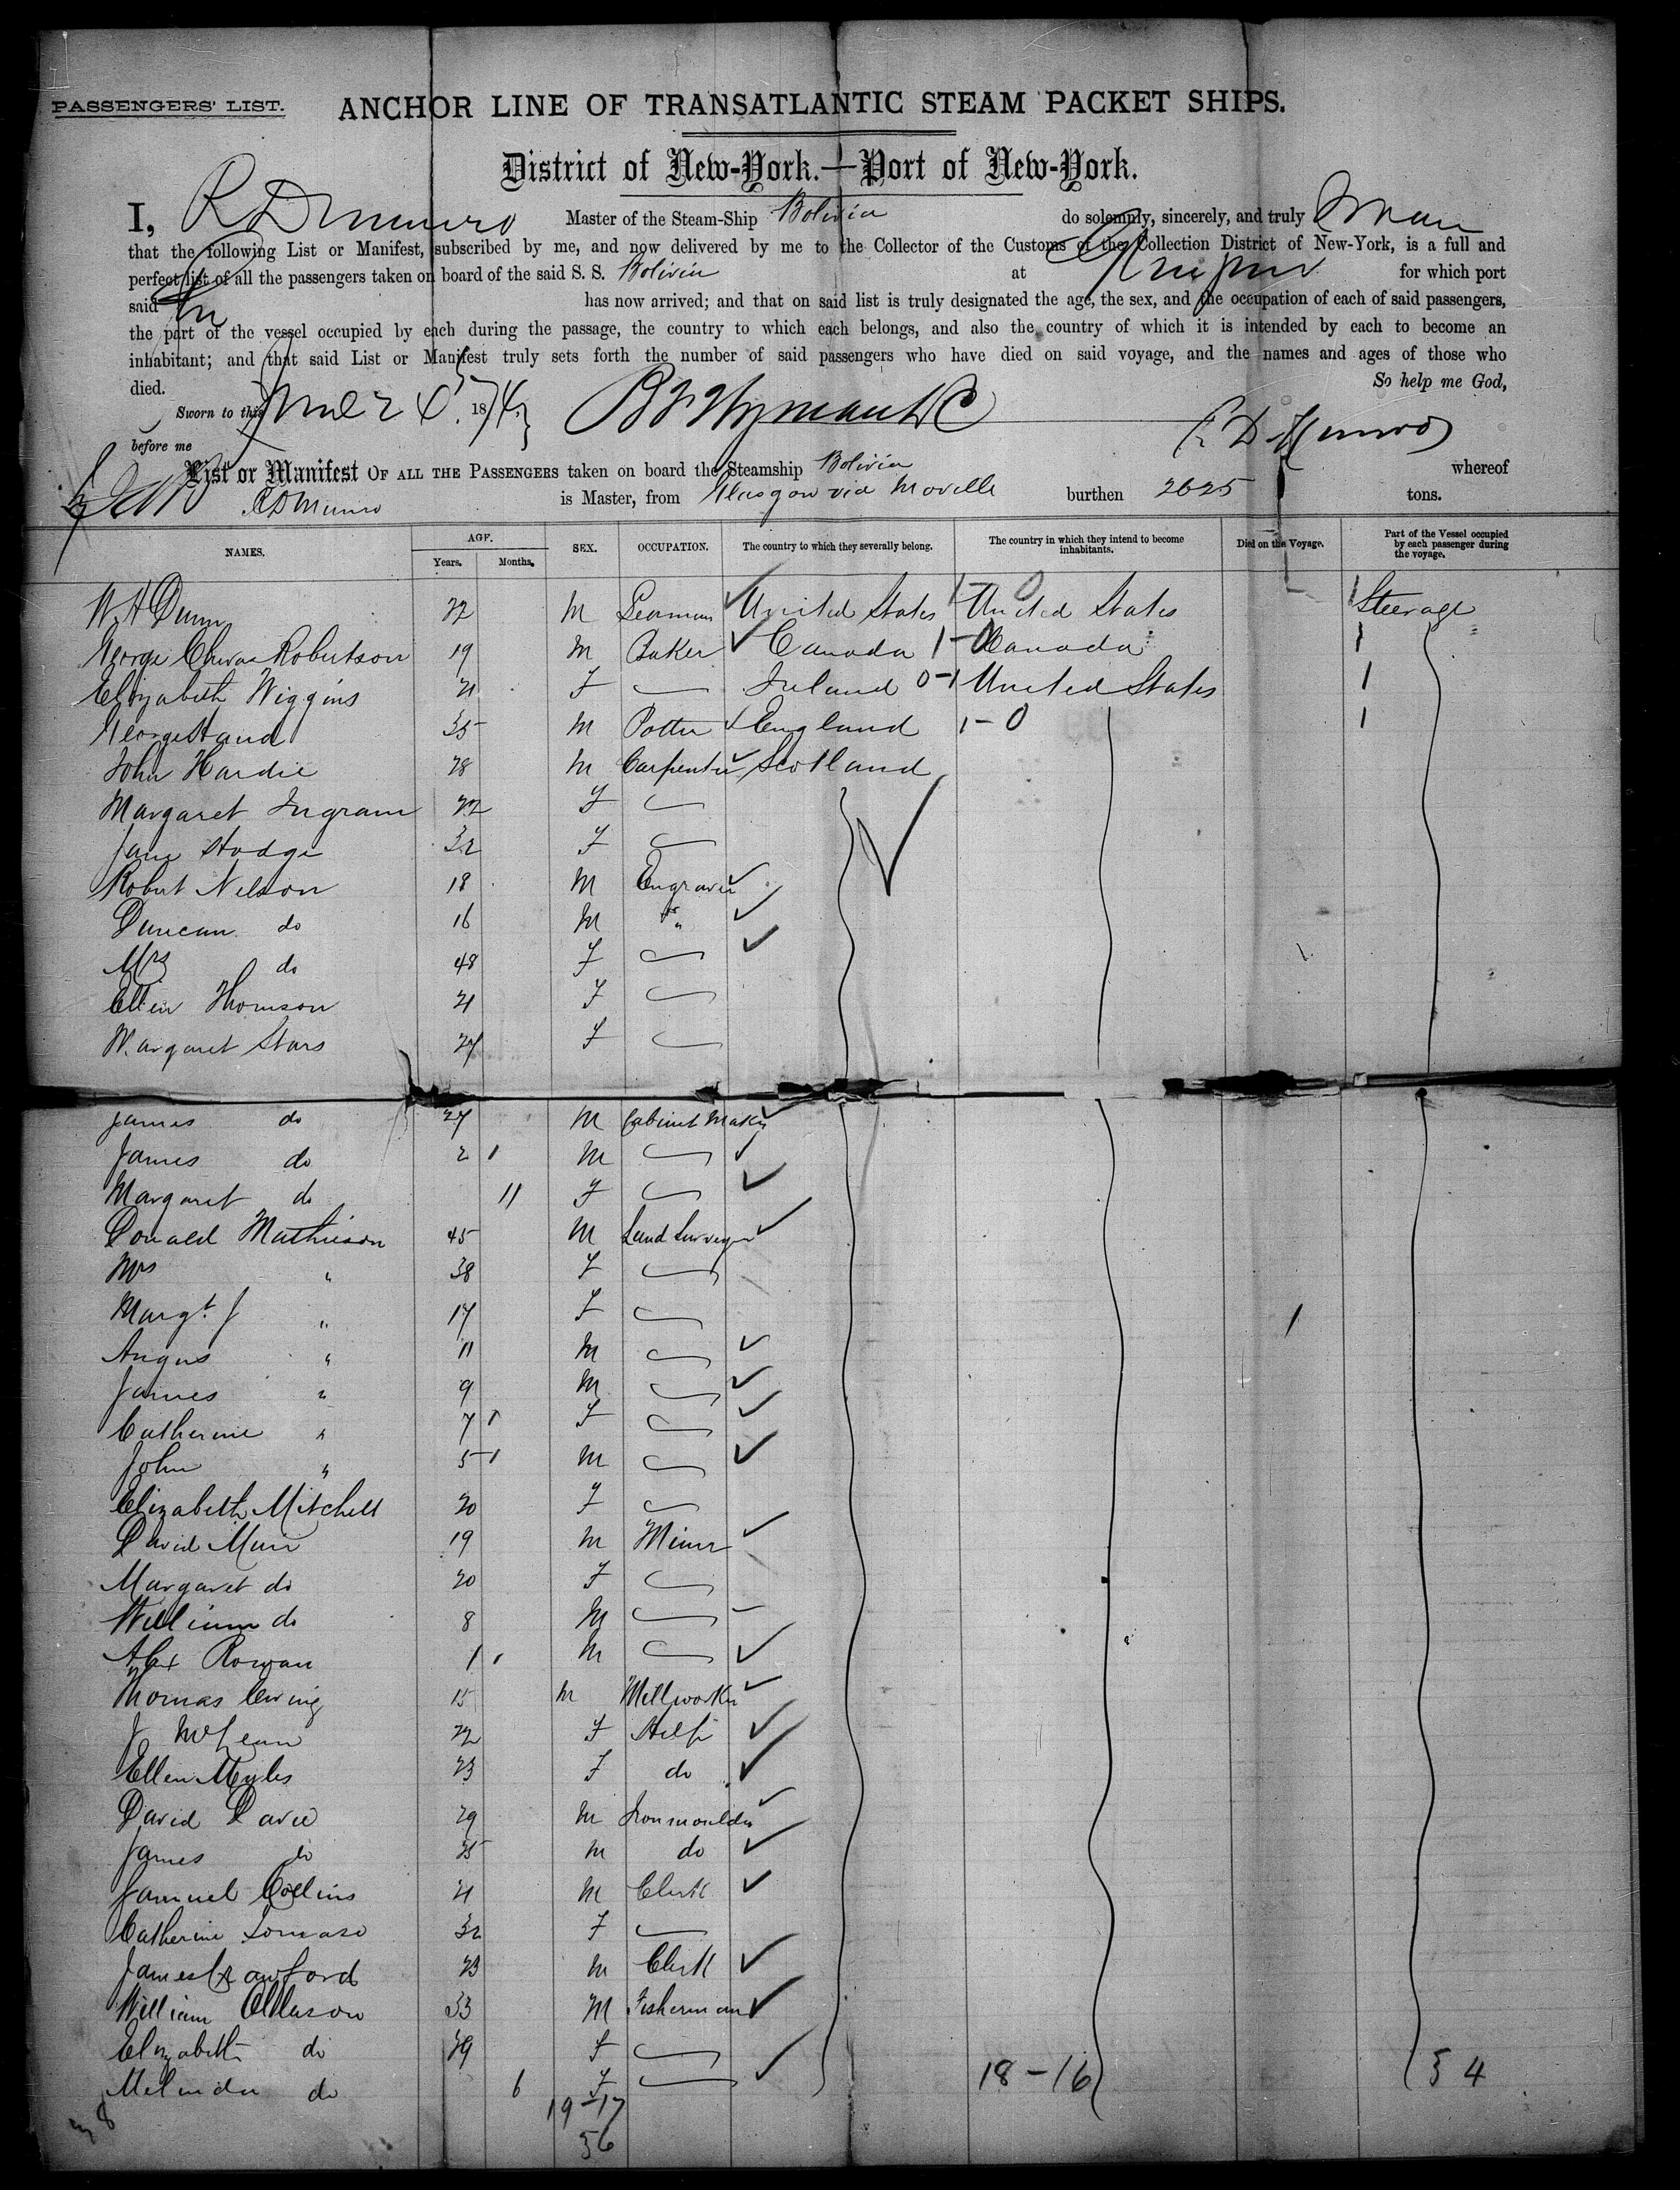 PASSENGERS' LIST.
ANCHOR LINE OF TRANSATLANTIC STEAM PACKET SHIPS.
District of New-York.—Port of New-York.
I, R D Munro Master of the Steam-Ship Bolivia do solemnly, sincerely, and truly Swear
that the following List or Manifest, subscribed by me, and now delivered by me to the Collector of the Customs of the Collection District of New-York, is a full and
perfect list of all the passengers taken on board of the said S. S. Bolivia at for which port
said has now arrived; and that on said list is truly designated the age, the sex, and the occupation of each of said passengers,
the part of the vessel occupied by each during the passage, the country to which each belongs, and also the country of which it is intended by each to become an
inhabitant; and that said List or Manifest truly sets forth the number of said passengers who have died on said voyage, and the names and ages of those who
died. So help me God,
Sworn to this 187
before me R D Munro
List or Manifest OF ALL THE PASSENGERS taken on board the Steamship Bolivia whereof
R D Munro is Master, from Glasgow via Moville burthen 2625 tons.
NAMES. AGE. Years. Months. SEX. OCCUPATION. The country to which they severally belong. The country in which they intend to become inhabitants. Died on the Voyage. Part of the Vessel occupied by each passenger during the voyage.
W H Dunn 22 M Seaman United States 1-0 United States 1 Steerage
George Robertson 19 M Baker Canada 1-0 Canada 1
Elizabeth Wiggins 21 F Ireland 0-1 United States 1
George Hand 35 M Potter England 1-0 1
John Hardie 28 M Carpenter Scotland
Margaret Ingram 22 F
Jane Hodge 32 F
Robert Nelson 18 M Engraver
Duncan do 16 M "
Mrs do 48 F
Ellen Thomson 21 F
Margaret Stars 27 F
James do 27 M Cabinet Maker
James do 2 M
Margaret do 11 F
Donald Mathieson 45 M Land Surveyor
Mrs " 38 F
Margt J " 17 F
Angus " 11 M
James " 9 M
Catherine " 7 F
John " 5 M
Elizabeth Mitchell 20 F
David Muir 19 M Miner
Margaret do 20 F
William do 8 M
Alex Rowan 1 M
Thomas Ewing 15 M Millworker
J McLean 22 F Help
Ellen Myles 23 F do
David Davie 29 M Ironmoulder
James do 25 M do
Samuel Collins 21 M Clerk
Catherine 32 F
James Crawford 23 M Clerk
William Ollason 33 M Fisherman
Elizabeth do 29 F
Melinda do 6 F
18-16 34
19-17
36
38